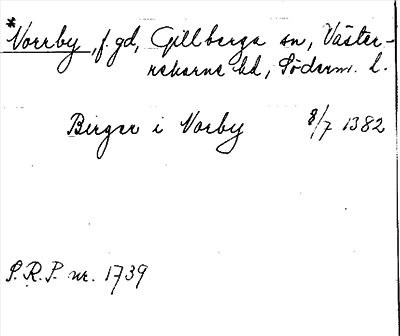 *Norrby, f. gd, Gillberga sn, Väster-
rekarne hd, Söderm. l.
Birger i Norby 8/7 1382
S.R.P. nr. 1739